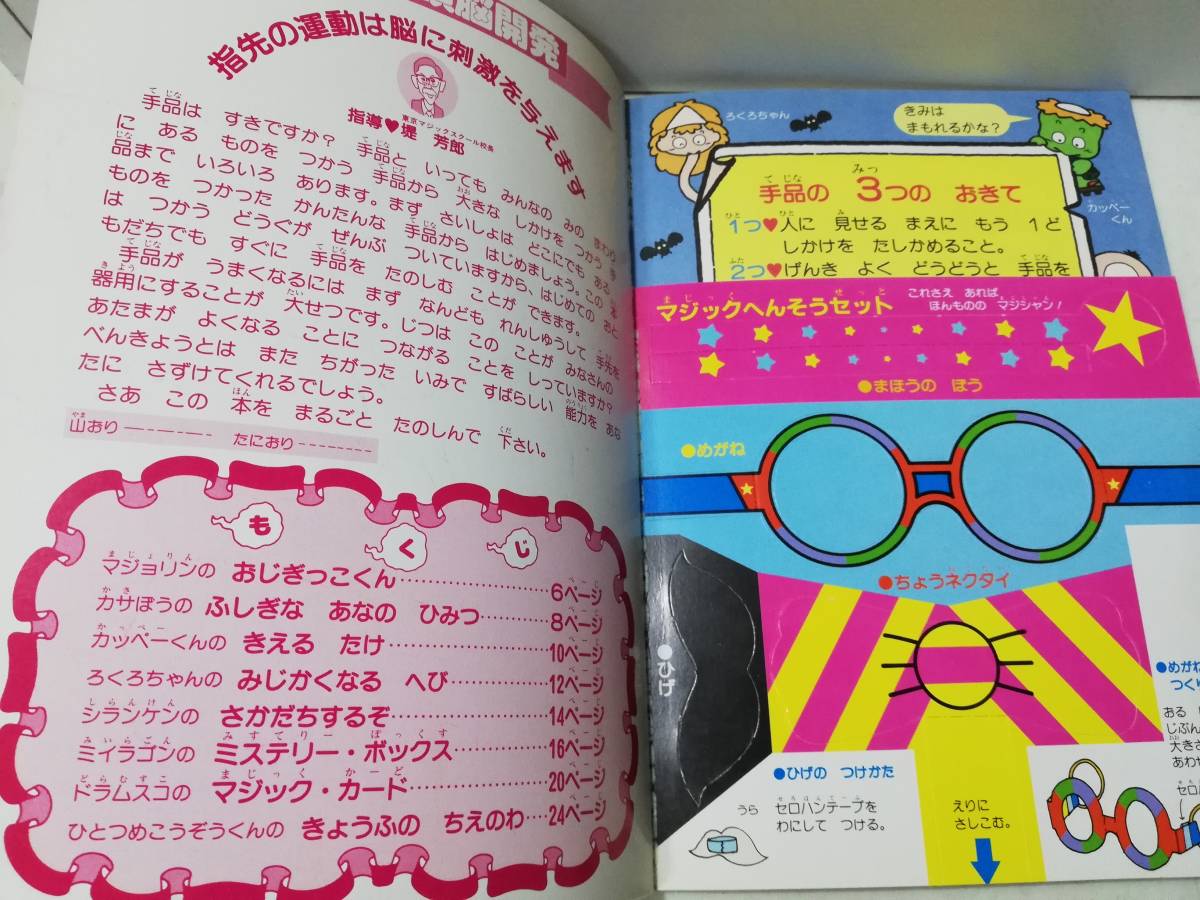 脳開発
指先の運動は脳に刺激を与えます
東京マジックスクール校長
指導♥堤 芳郎
手品は すきですか? 手品と いっても みんなの みの まわり
に ある ものを つかう 手品から 大きな しかけを つかう 手
品まで いろいろ あります。まず さいしょは どこにでも ある
ものを つかった かんたんな 手品から はじめましょう。この 本
は つかう どうぐが ぜんぶ ついていますから、はじめての お
もだちでも すぐに 手品を たのしむ ことが できます。
手品が うまくなるには まず なんども れんしゅうして 手先を
器用にすることが 大せつです。じつは この ことが みなさんの
あたまが よくなる ことに つながる ことを しっていますか?
べんきょうとは また ちがった いみで すばらしい 能力を あな
たに さずけてくれるでしょう。
さあ この 本を まるごと たのしんで 下さい。
山おり たにおり
もくじ
マジョリンの おじぎっこくん……6ページ
カサぼうの ふしぎな あなの ひみつ……8ページ
カッペーくんの きえる たけ……10ページ
ろくろちゃんの みじかくなる へび……12ページ
シランケンの さかだちするぞ……14ページ
ミイラゴンの ミステリー・ボックス……16ページ
ドラムスコの マジック・カード……20ページ
ひとつめこうぞうくんの きょうふの ちえのわ……24ページ
ろくろちゃん
きみは
まもれるかな?
カッペー
くん
手品の 3つの おきて
1つ♥人に 見せる まえに もう 1ど
しかけを たしかめること。
2つ♥げんき よく どうどうと 手品を
マジックへんそうセット
これさえ あれば、
ほんものの マジシャン!
●まほうの ぼう
●めがね
●ちょうネクタイ
●ひげ
●ひげの つけかた
うら
セロハンテープを
わにして つける。
えりに
さしこむ。
●めがね
つくり
ある
じぶん
大きさ
あわせ
セロハ